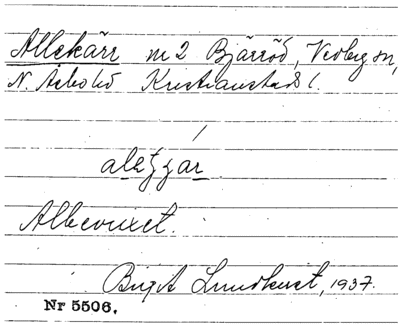 Allekärr nr 2 Bjärröd, Vedby sn,
N. Åsbo hd Kristianstads l.
Albevuxet.
Birgit Lundkvist, 1937.
Nr 5506.